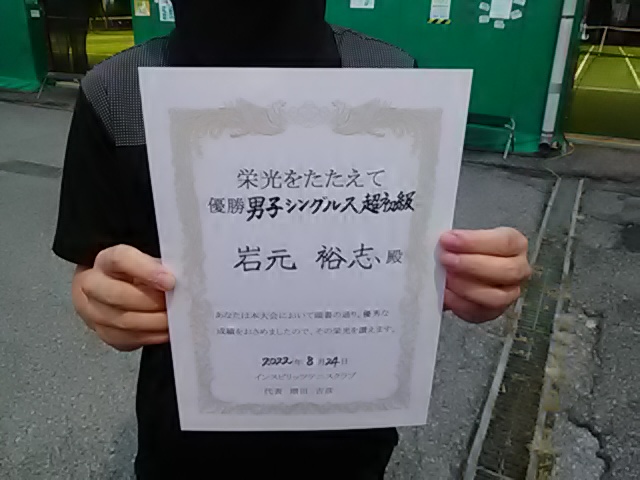 栄光をたたえて
優勝 男子シングルス 超初級
岩元 裕志 殿
あなたは本大会において頭書の通り、優秀な
成績をおさめましたので、その栄光を讃えます。
2022年 8月24日
インスピリッツテニスクラブ
代表